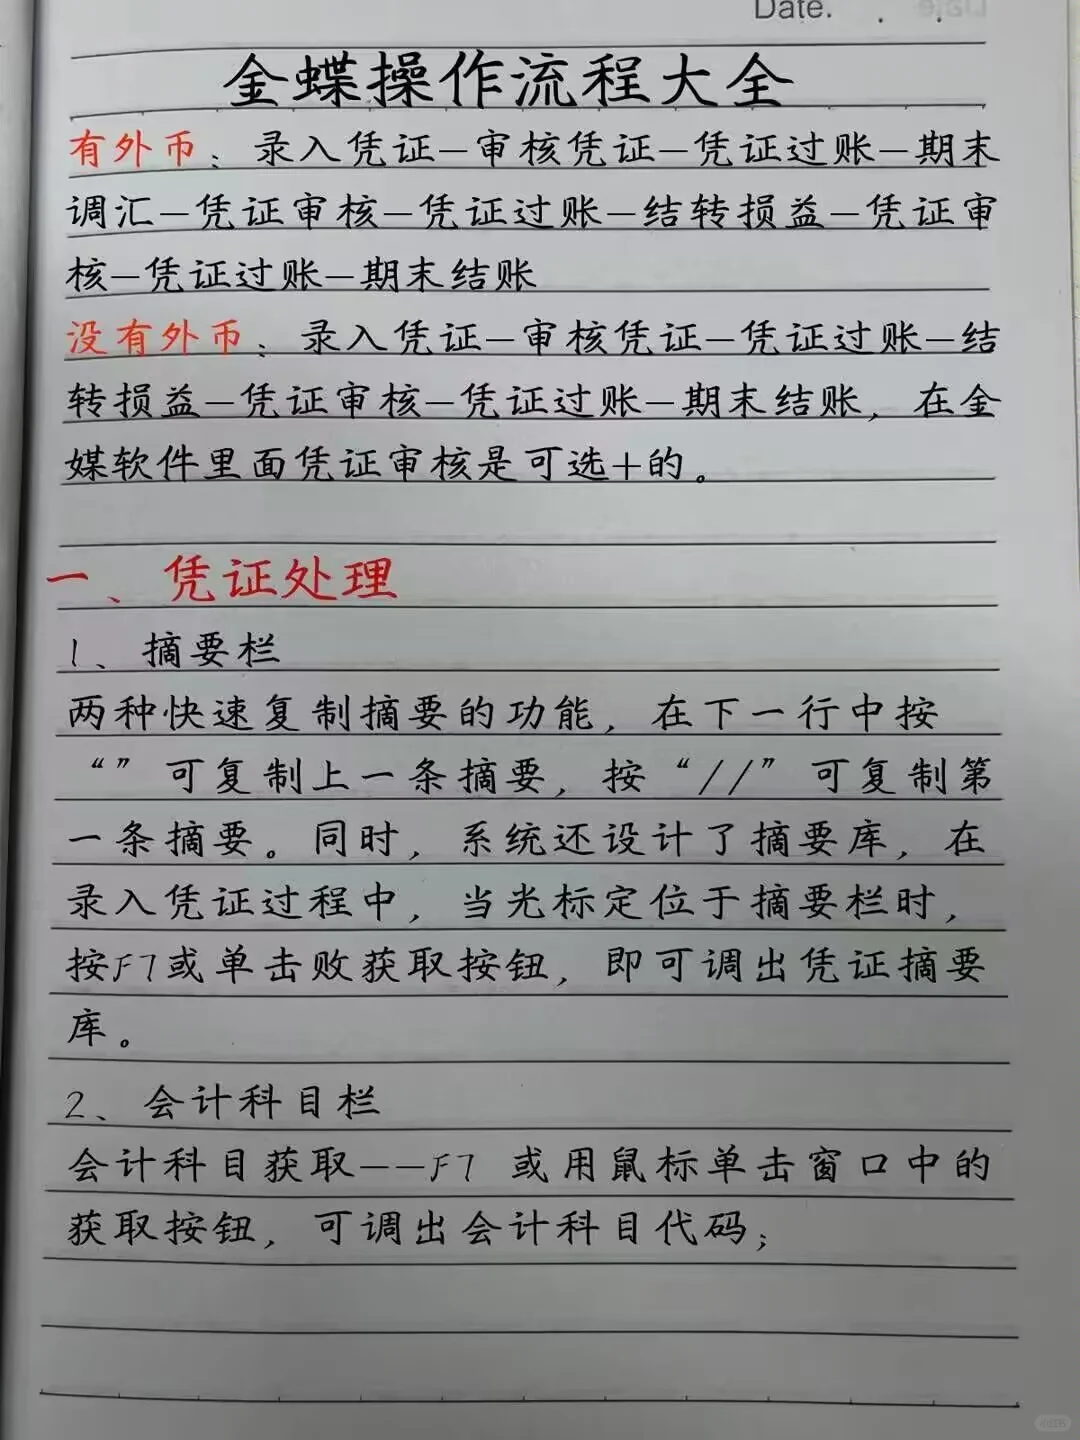 Date.
金蝶操作流程大全
有外币：录入凭证—审核凭证—凭证过账—期末
调汇—凭证审核—凭证过账—结转损益—凭证审
核—凭证过账—期末结账
没有外币：录入凭证—审核凭证—凭证过账—结
转损益—凭证审核—凭证过账—期末结账，在金
媒软件里面凭证审核是可选+的。
一、凭证处理
1、摘要栏
两种快速复制摘要的功能，在下一行中按
“”可复制上一条摘要，按“//”可复制第
一条摘要。同时，系统还设计了摘要库，在
录入凭证过程中，当光标定位于摘要栏时，
按F7或单击败获取按钮，即可调出凭证摘要
库。
2、会计科目栏
会计科目获取——F7 或用鼠标单击窗口中的
获取按钮，可调出会计科目代码；